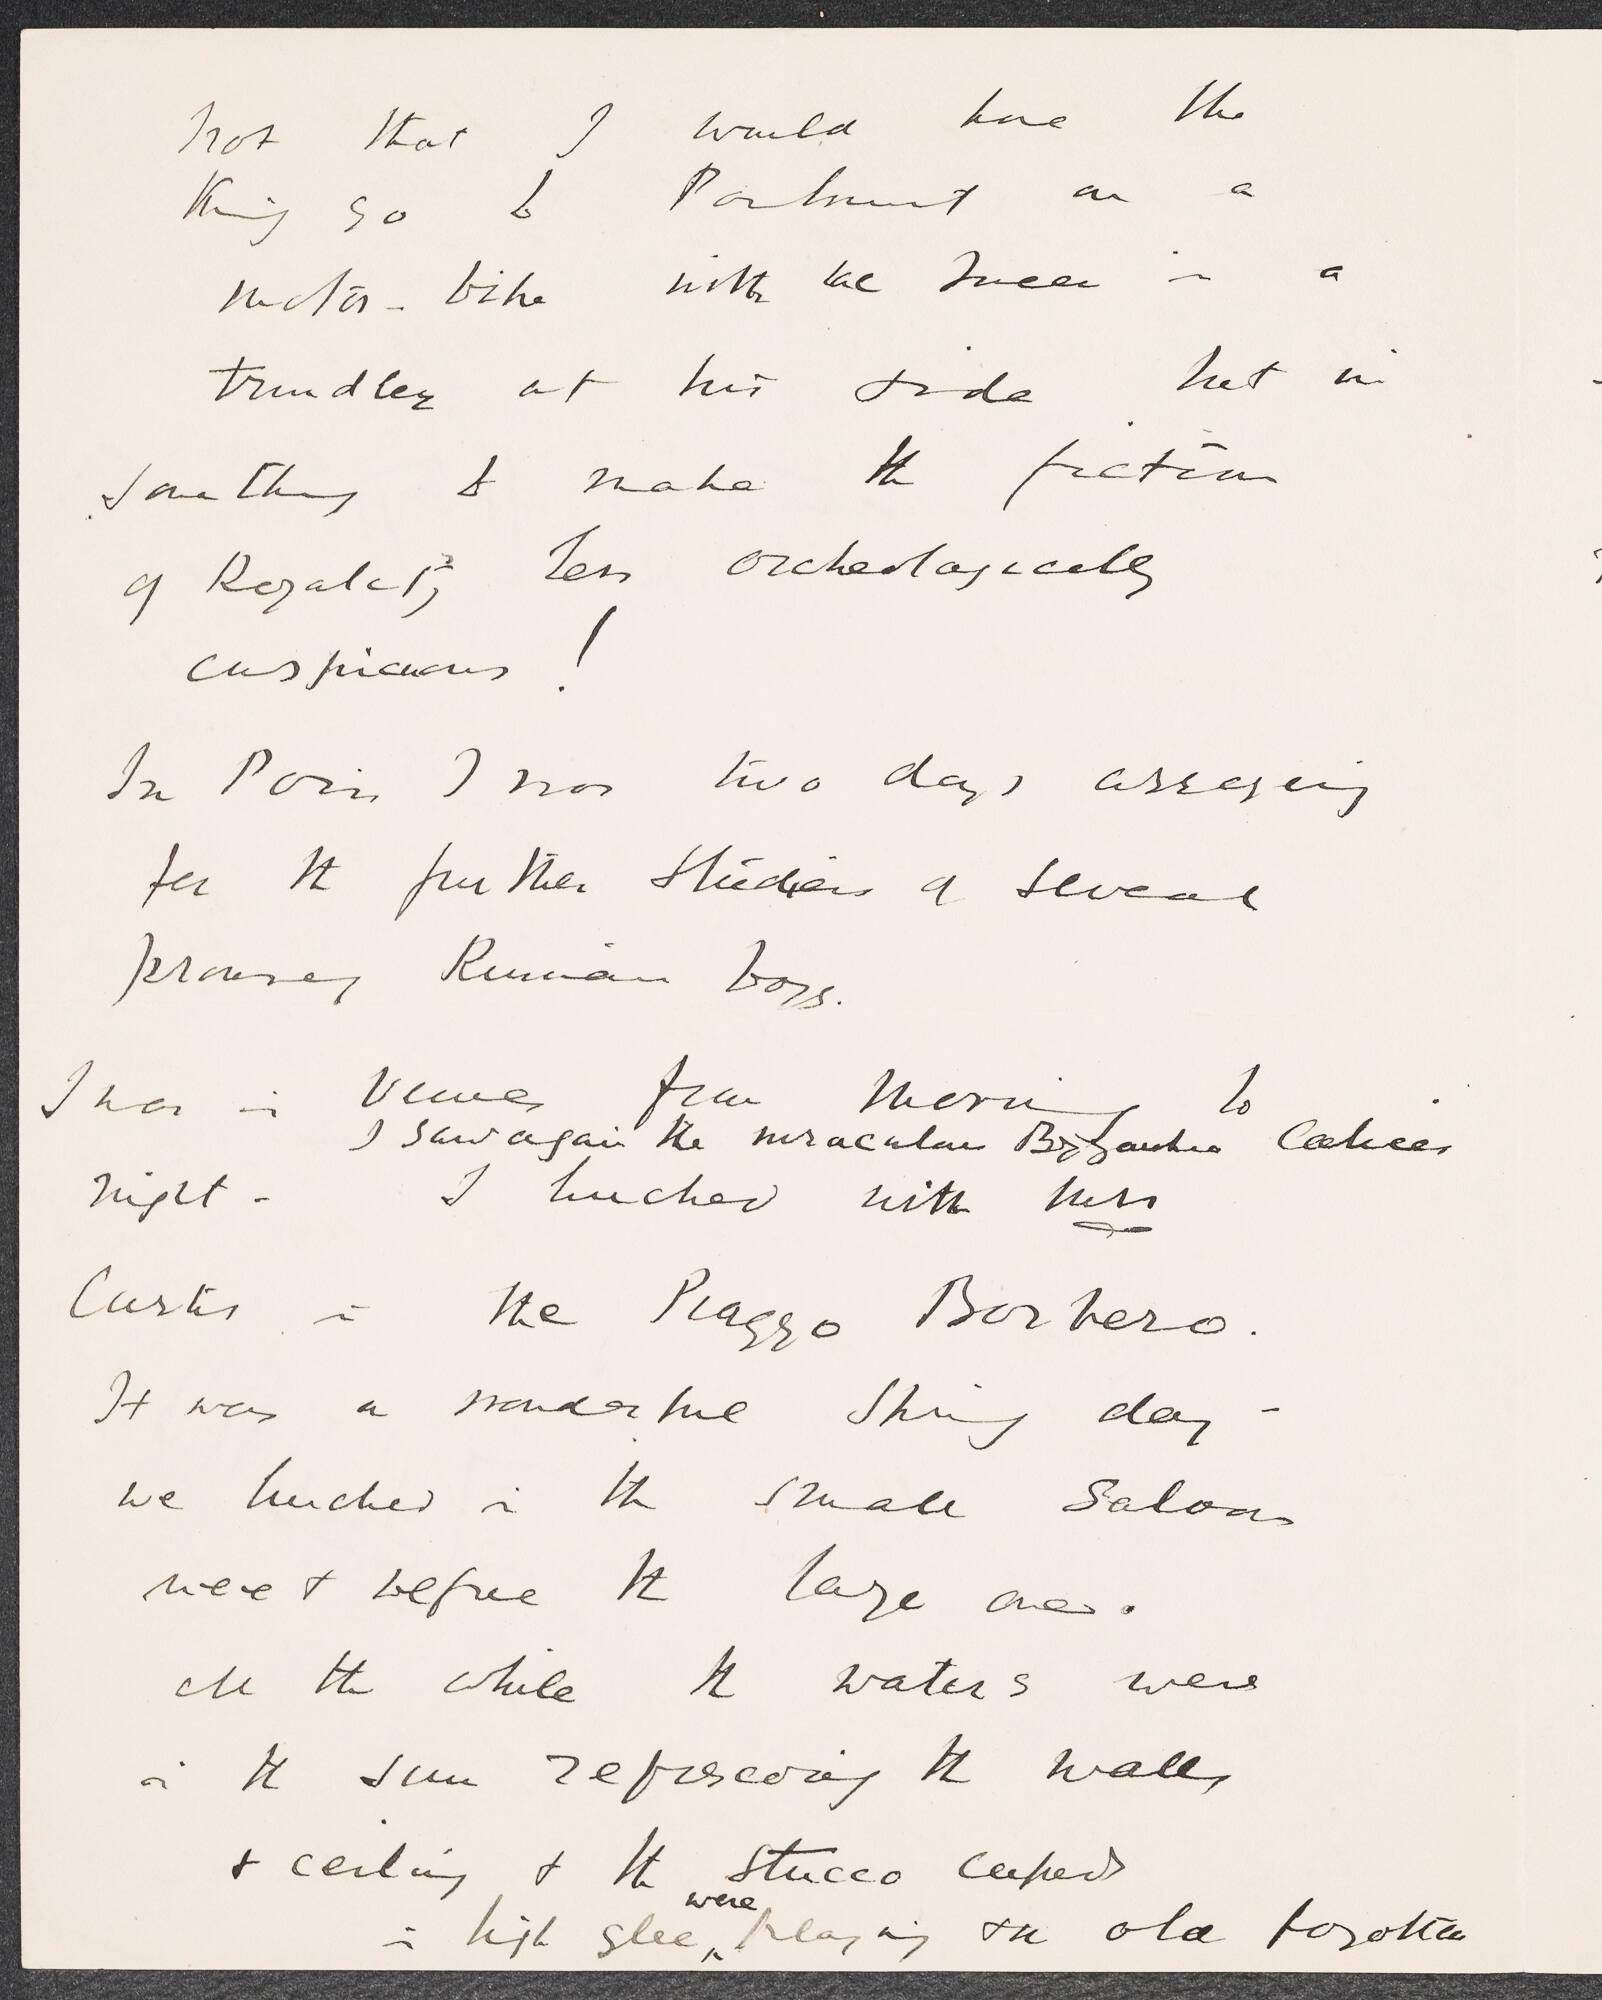 Not that I would have the
King go to Parliament on a
motor-bike with the Queen in a
trundley at his side but in
something to make the fiction
of Royalty less archeologically
cuspicuous!
In Paris I was two days arranging
for the further studies of several
promising Russian boys.
I was in Venice from morning to
I saw again the miraculous Byzantine Chalices
night - I lunched with Mrs
Curtis in the Plazzo Barbero.
It was a wonderful Spring day -
we lunched in the small Saloon
were & before the large ones.
all the while the waters were
in the sun refrescoing the walls
& ceiling & the Stucco cupids
in high glee were playing the old forgotten